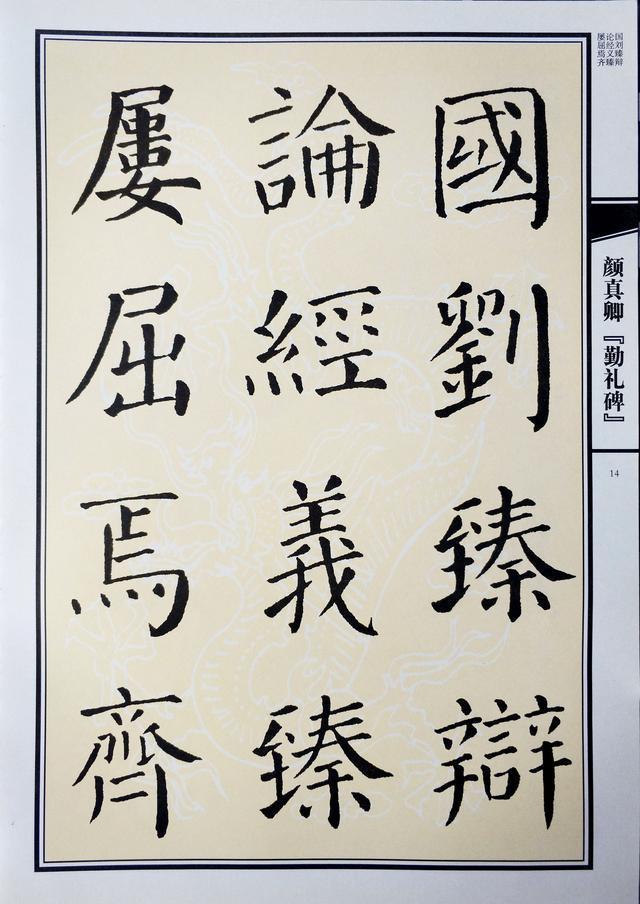 國劉臻辯
論經義臻
屢屈焉齊
国刘臻辩
论经义臻
屡屈焉齐
颜真卿『勤礼碑』
14